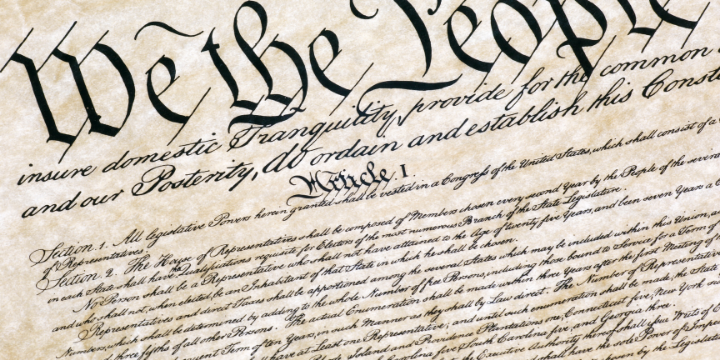 We the People
insure domestic Tranquility, provide for the common
and our Posterity, do ordain and establish this Const
Article. I.
Section. 1. All legislative Powers herein granted shall be vested in a Congress of the United States, which shall consist of a
of Representatives.
Section. 2. The House of Representatives shall be composed of Members chosen every second Year by the People of the several
in each State shall have the Qualifications requisite for Electors of the most numerous Branch of the State Legislature.
No Person shall be a Representative who shall not have attained to the Age of twenty five Years, and been seven Years a C
and who shall not, when elected, be an Inhabitant of that State in which he shall be chosen.
Representatives and direct Taxes shall be apportioned among the several States which may be included within this Union,
Numbers, which shall be determined by adding to the whole Number of free Persons, including those bound to Service for a Term of
three fifths of all other Persons. The actual Enumeration shall be made within three Years after the first Meeting of
subsequent Term of ten Years, in such Manner as they shall by Law direct. The Number of Representatives
have at Least one Representative; and until such enumeration shall be made, the State
Rhode Island and Providence Plantations one, Connecticut five, New York
Carolina five, South Carolina five, and Georgia three.
the Executive Authority thereof shall issue Writs of
shall have the sole Power of Imp